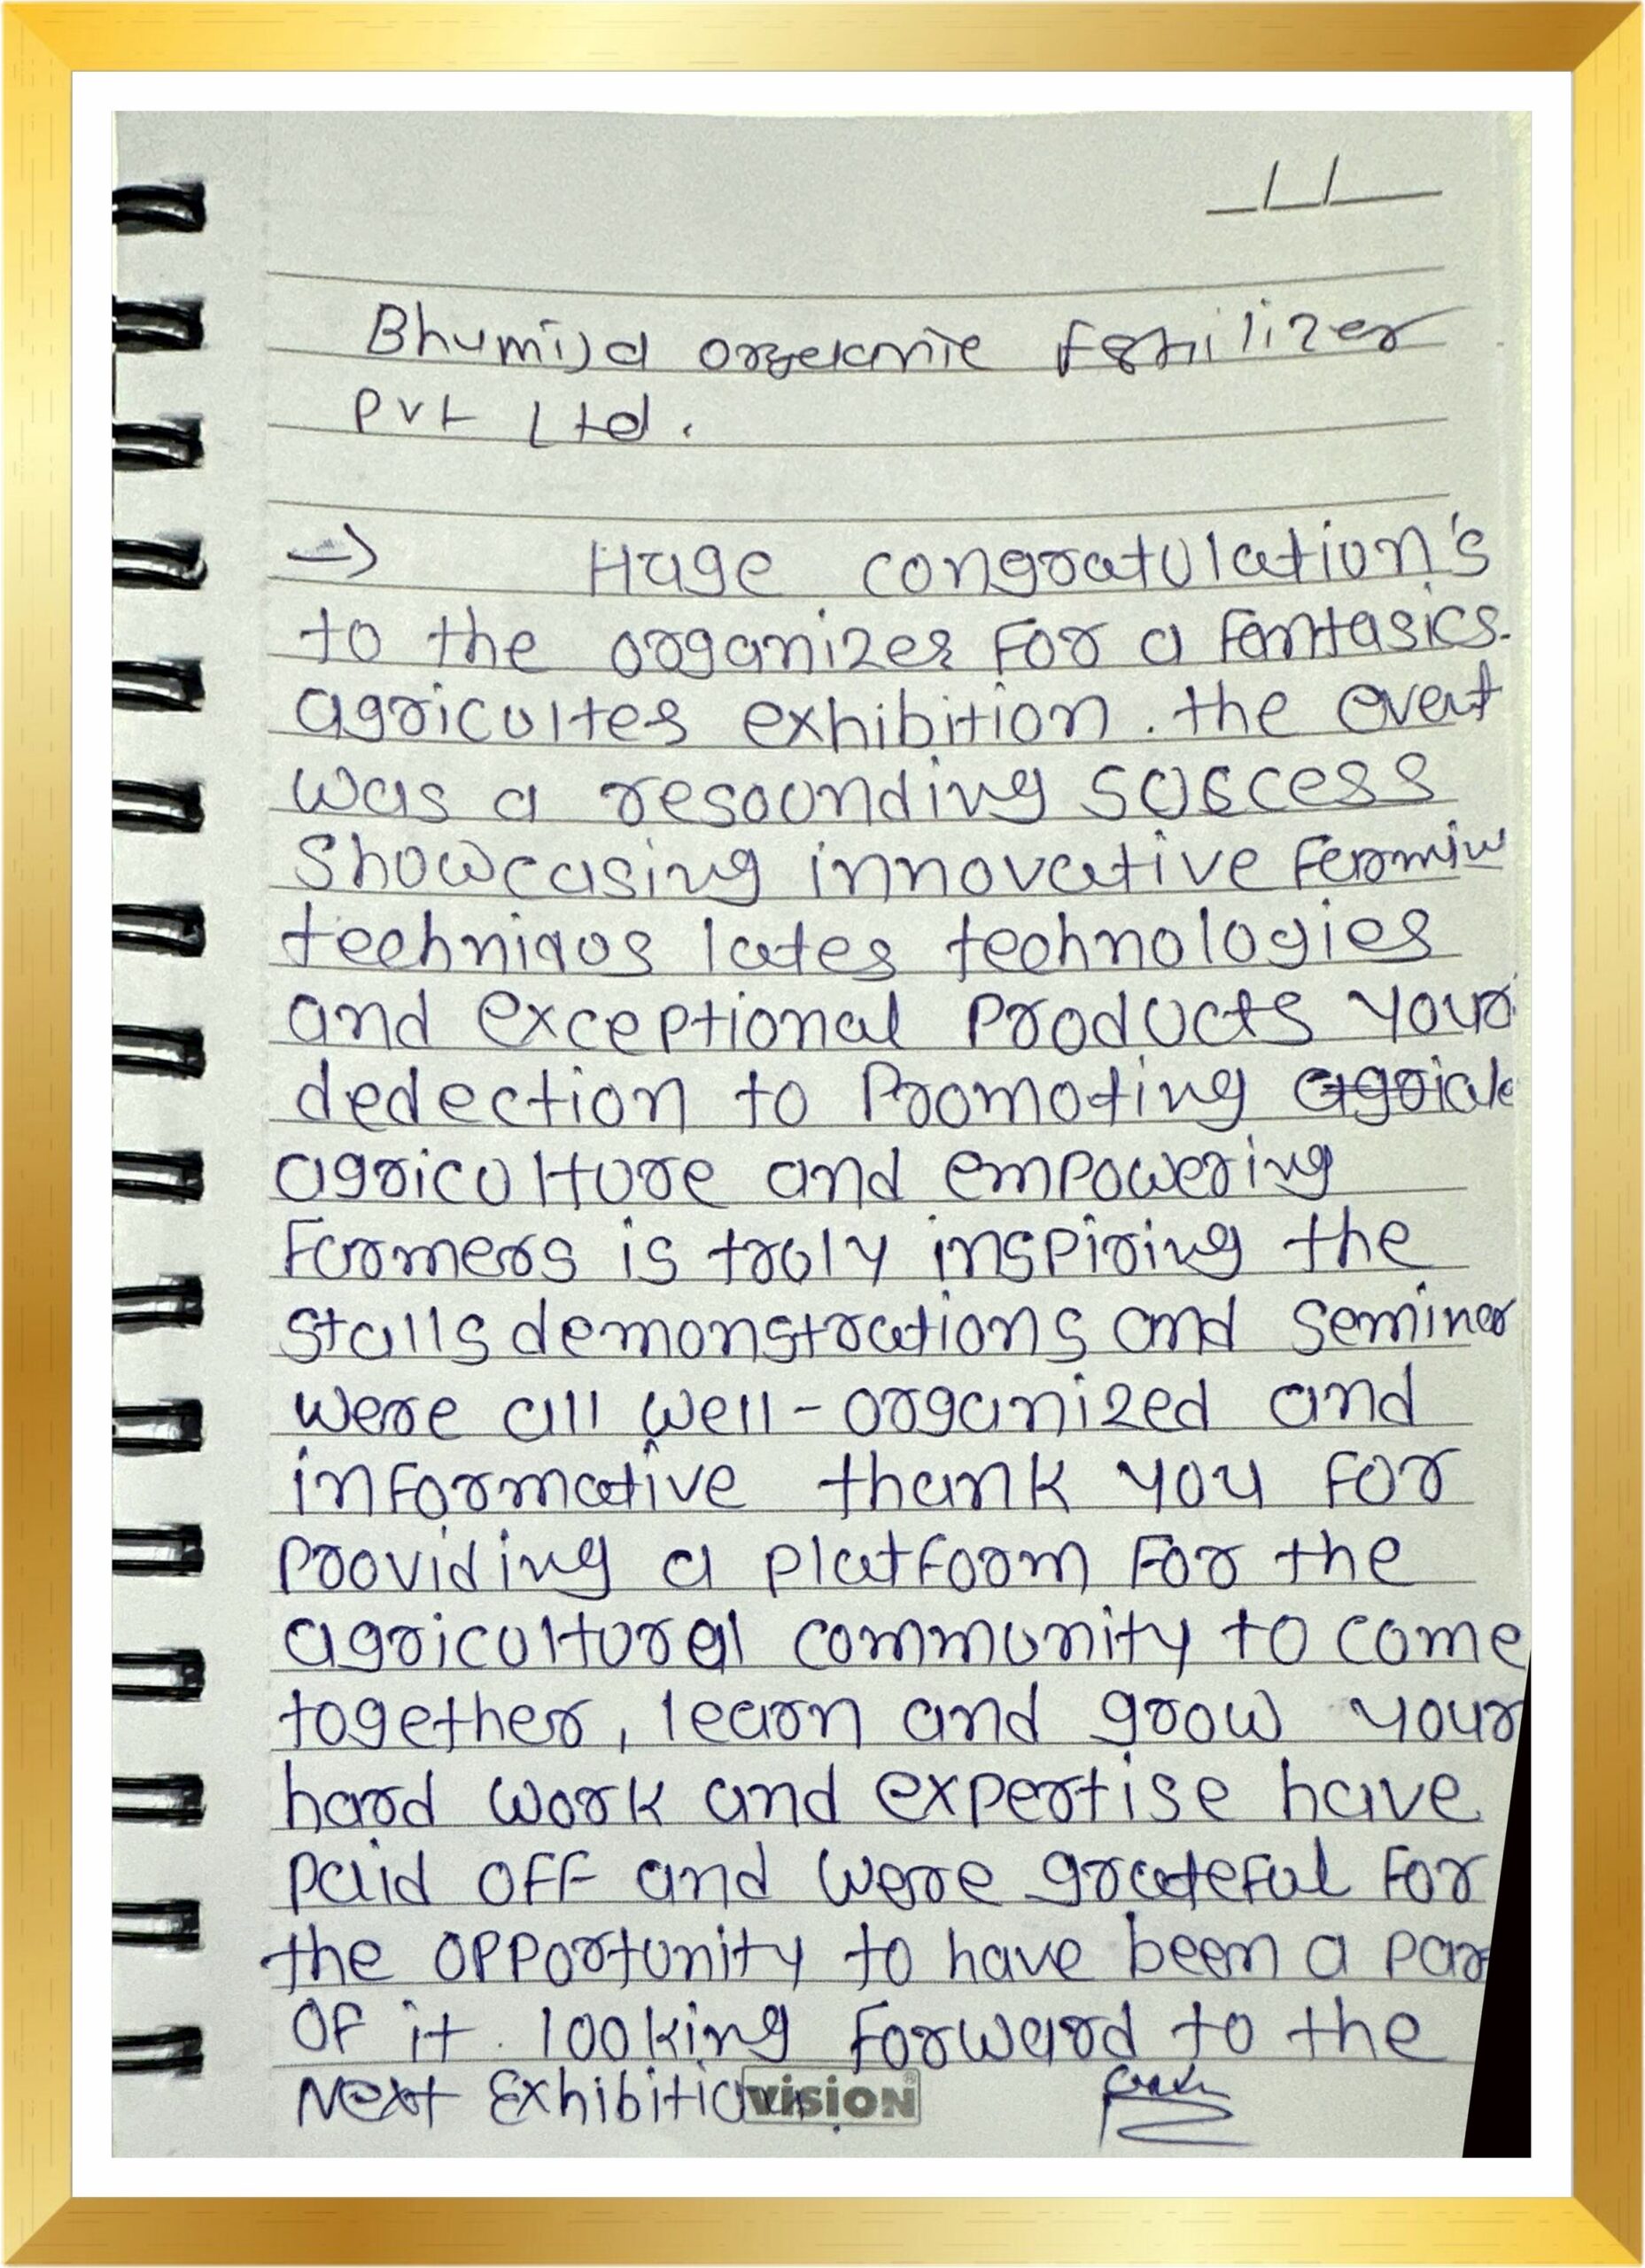 __/__/____
Bhumija orgeknic Fertilizer
Pvt Ltd.
→ Huge congratulation's
to the organizer For a Fantasics.
agricultes exhibition. the event
was a resounding success
showcasing innovative Farmin
techniqus lates technologies
and exceptional Products your
dedection to Promoting
agriculture and empowering
Farmers is truly inspiring the
stalls demonstrations and seminer
were all well-organized and
informative thank you for
Providing a platform For the
agricultural community to come
together, learn and grow your
hard work and expertise have
Paid off and were grateful For
the opportunity to have been a par
of it. looking Forward to the
Next Exhibition.
vision